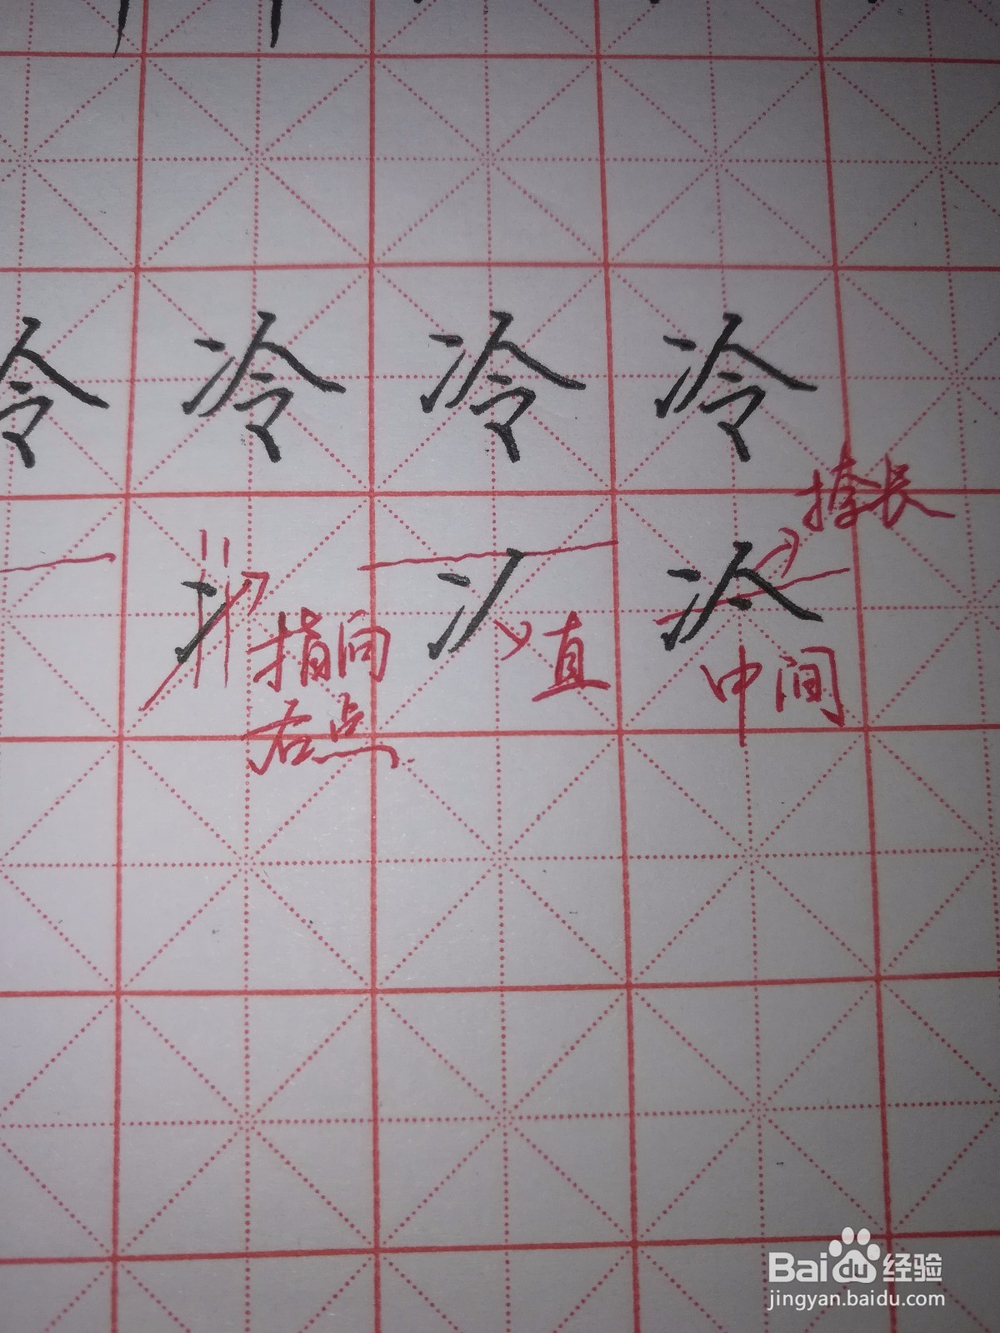 冷 冷 冷 冷
捺长
指向 直 中间
右点
Baidu经验
jingyan.baidu.com